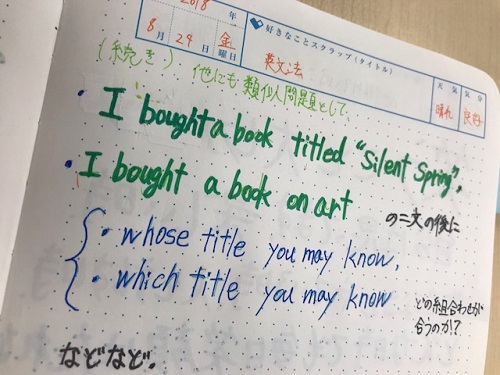 2018 年
8月 24日 金曜日
好きなことスクラップ(タイトル)
英文法
天気 気分
晴れ 良好
(続き)..他にも類似人問題として、
・I bought a book titled "Silent Spring".
・I bought a book on art
の二文の後に
・whose title you may know.
・which title you may know
どの組み合わせが
合うのか!?
などなど。